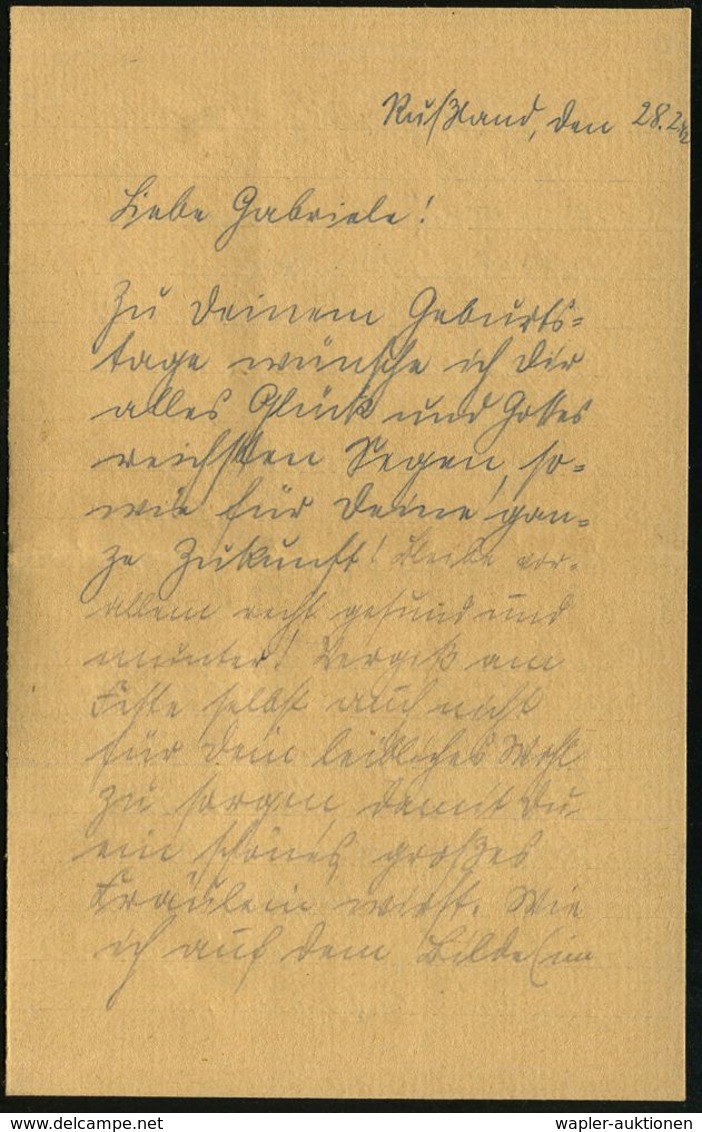 Rußland, den 28.2.42
Liebe Gabriele!
Zu Deinem Geburts=
tage wünsche ich Dir
alles Glück und Gottes
reichsten Segen, so=
wie für Deine gan=
ze Zukunft! Bleibe vor
allem recht gesund und
munter! Vergiß am
Feste selbst auch nicht
für Dein leibliches Wohl
zu sorgen, damit Du
ein schönes, großes
Fräulein wirst. Wie
ich auf dem Bilde (im
www.delcampe.net
wapler-auktionen